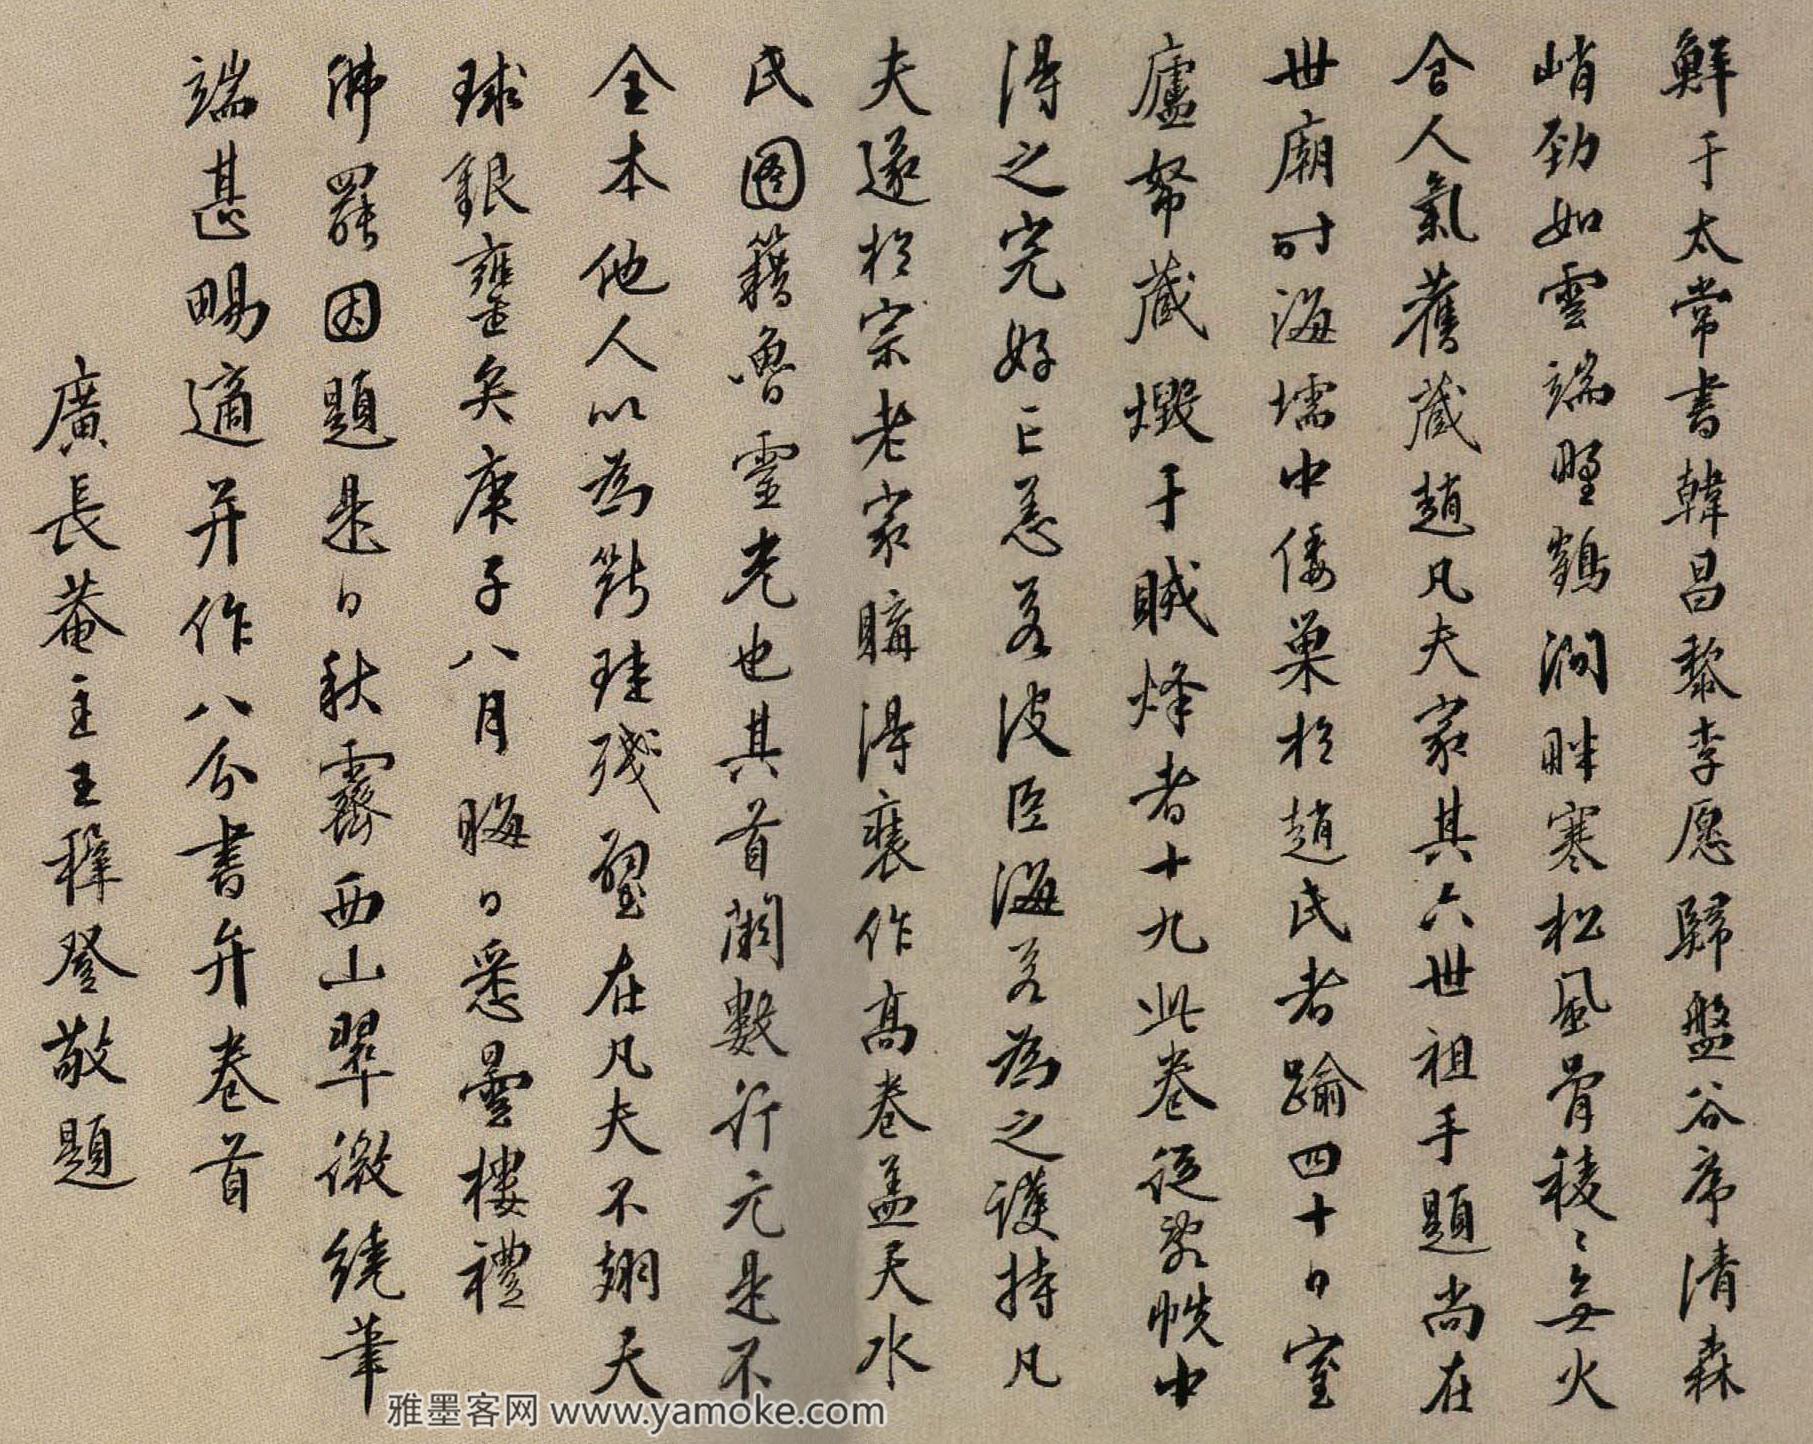 鮮于太常書韓昌黎李愿歸盤谷序清森
峭勁如雲端野鶴澗畔寒松風骨稜〻無火
食人氣舊藏趙凡夫家其六世祖手題尚在
世廟時海壖中倭巢於趙氏者踰四十日室
廬帑藏燬于賊烽者十九此卷從敗帙中
得之完好亡恙若波臣海若為之護持凡
夫遂於宗老家購得裝作高卷蓋天水
氏圖籍魯靈光也其首闕數行元是不
全本他人以為斷珪殘璧在凡夫不翅天
球銀甕矣庚子八月晦日悉曇樓禮
佛罷因題是日秋霽西山翠微繞筆
端甚暢適并作八分書弁卷首
廣長菴主王穉登敬題
雅墨客网 www.yamoke.com